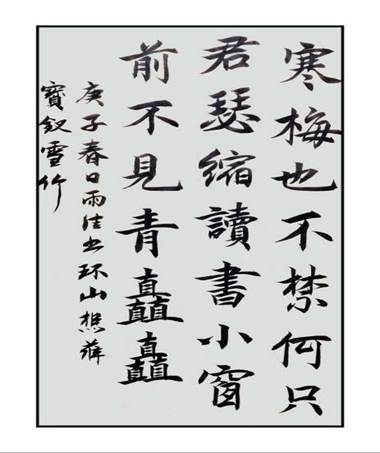 寒梅也不禁何只
君瑟縮讀書小窗
前不見青矗矗
庚子春日雨佳书环山樵薛
寶釵雪竹